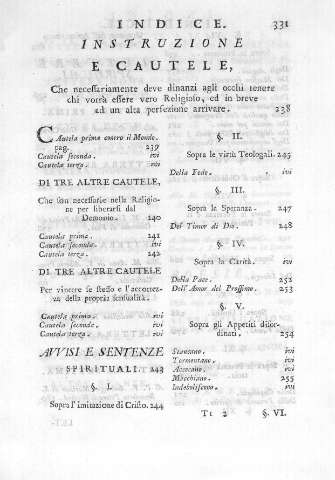 INDICE. 331
INSTRUZIONE
E CAUTELE,
Che necessariamente deve dinanzi agli occhi tenere
chi vorrà essere vero Religioso, ed in breve
ad un alta perfezione arrivare. 238
CAutela prima contro il Mondo.
pag. 239
Cautela seconda. ivi
Cautela terza. ivi
DI TRE ALTRE CAUTELE,
Che son necessarie nella Religio-
ne per liberarsi dal
Demonio. 240
Cautela prima. 241
Cautela seconda. ivi
Cautela terza. 242
DI TRE ALTRE CAUTELE
Per vincere se stesso e l'accortez-
za della propria sensualità.
Cautela prima. ivi
Cautela seconda. ivi
Cautela terza. ivi
AVVISI E SENTENZE
SPIRITUALI. 243
§. I.
Sopra l'imitazione di Cristo. 244
§. II.
Sopra le virtù Teologali. 245
Della Fede. ivi
§. III.
Sopra la Speranza. 247
Del Timor di Dio. 248
§. IV.
Sopra la Carità. ivi
Della Pace. 251
Dell'Amor del Prossimo. 253
§. V.
Sopra gli Appetiti disor-
dinati. 254
Stancano. ivi
Tormentano. ivi
Accecano. ivi
Macchiano. 255
Indeboliscono. ivi
Tt 2 §. VI.